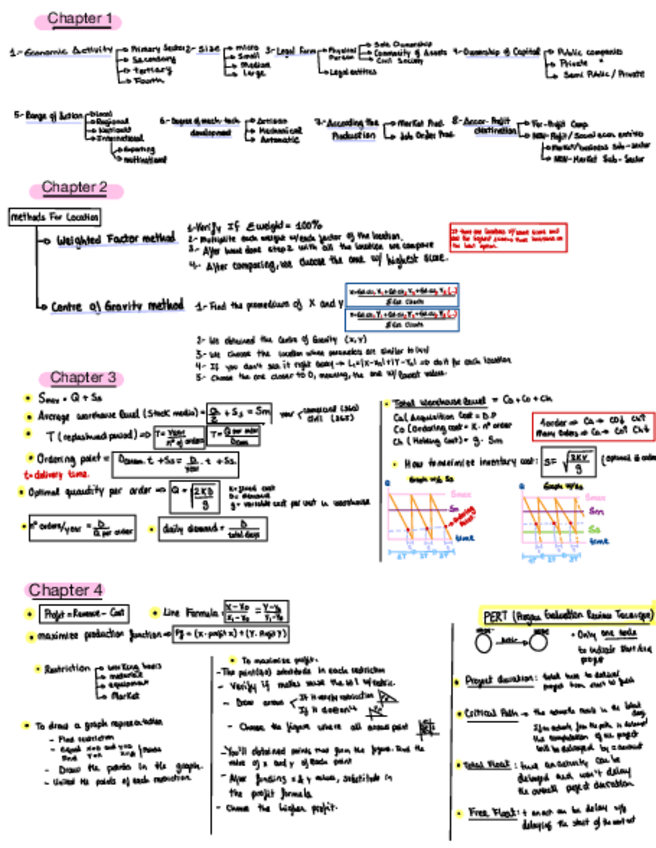 Chapter 1
1- Economic Activity
Primary Sector
Secondary
Tertiary
Fourth
2- Size
micro
Small
Medium
Large
3- Legal Form
Physical Person
Sole Ownership
Community of Assets
Civil Society
Legal entities
4- Ownership of Capital
Public companies
Private
Semi Public / Private
5- Range of Action
Local
Regional
National
International
Exporting
multinational
6- Degree of mech-tech development
Artisan
Mechanical
Automatic
7- According the Production
Market Prod.
Job Order Prod.
8- Accor. Profit destination
For-Profit Comp.
NON-Profit / Social econ. entities
Market/business sub-sector
NON-Market Sub-Sector
Chapter 2
methods For Location
Weighted Factor method
1- Verify If Σ weight = 100%
2- Multiplicate each weight w/ each factor of the location.
3- After have done step 2 with all the location we compare
4- After comparing, we choose the one w/ highest score.
Centre of Gravity method
1- Find the of X and Y
2- We obtained the Centre of Gravity (x,y)
3- We choose the location whose parameters are similar to (x,y)
4- If you don't see it right away → L = |X-X₀|+|Y-Y₀| ⇒ do it for each location
5- Choose the one closer to 0, meaning, the one w/ lowest values.
Chapter 3
Smax = Q + Ss
Average warehouse level (Stock media) = Q/2 + Ss = Sm
year commercial (360)
civil (365)
T (replenished period) ⇒ T = year / nº of orders T = Q per order / D
Ordering point = t + Ss = D/year . t + Ss
t = delivery time.
Optimal quantity per order ⇒ Q = √2KD/g
K = fixed cost
D = demand
g = variable cost per unit in warehouse
nº orders/year = D / Q per order
daily demand = D / total days
Total Warehouse level = Ca + Co + Ch
Ca (Acquisition Cost = D.P
Co (Ordering cost = K. nº order
Ch (Holding Cost) = g. Sm
1 order ⇒ Ca → CO↓ Ch↑
Many orders ⇒ Ca → Co↑ Ch↓
How to minimize inventory cost:
Graph w/o Ss
Graph w/Ss
Q
Smax
Sm
Ordering Point
time
ΔT ΔT ΔT
Q
Smax
Sm
Ss
time
ΔT ΔT ΔT
Chapter 4
Profit = Revenue - Cost
Line Formula = X-X₀ / X₁-X₀ = Y-Y₀ / Y₁-Y₀
maximize production function ⇒ = (X. profit x) + (Y. Profit Y)
Restriction
working hours
materials
equipment
Market
To draw a graph representation
- Find restriction
- equal x=0 and y=0
- Draw the points in the graph.
- United the points of each restriction.
To maximize profit.
- The point(0,0) substitute in each restriction
- Verify if makes sense the
- Draw arrows
If it verify restriction
If it doesn't
- Choose the figure where all arrows point
- You'll obtained points that form the figure. Find the
value of x and y of each point
- After finding x & y values, substitute in
the profit formula
- Choose the higher profit.
PERT (Program Evaluation Review Technique)
Only one node
to indicate start/end
project
Project duration: total time to deliver
project from start to finish
Critical Path →
If an activity from the path is delayed
the completation of the project
will be delayed by
Total Float: time an activity can be
delayed and won't delay
the overall project duration
Free Float: t an act can be delay w/o
delaying the start of the next act